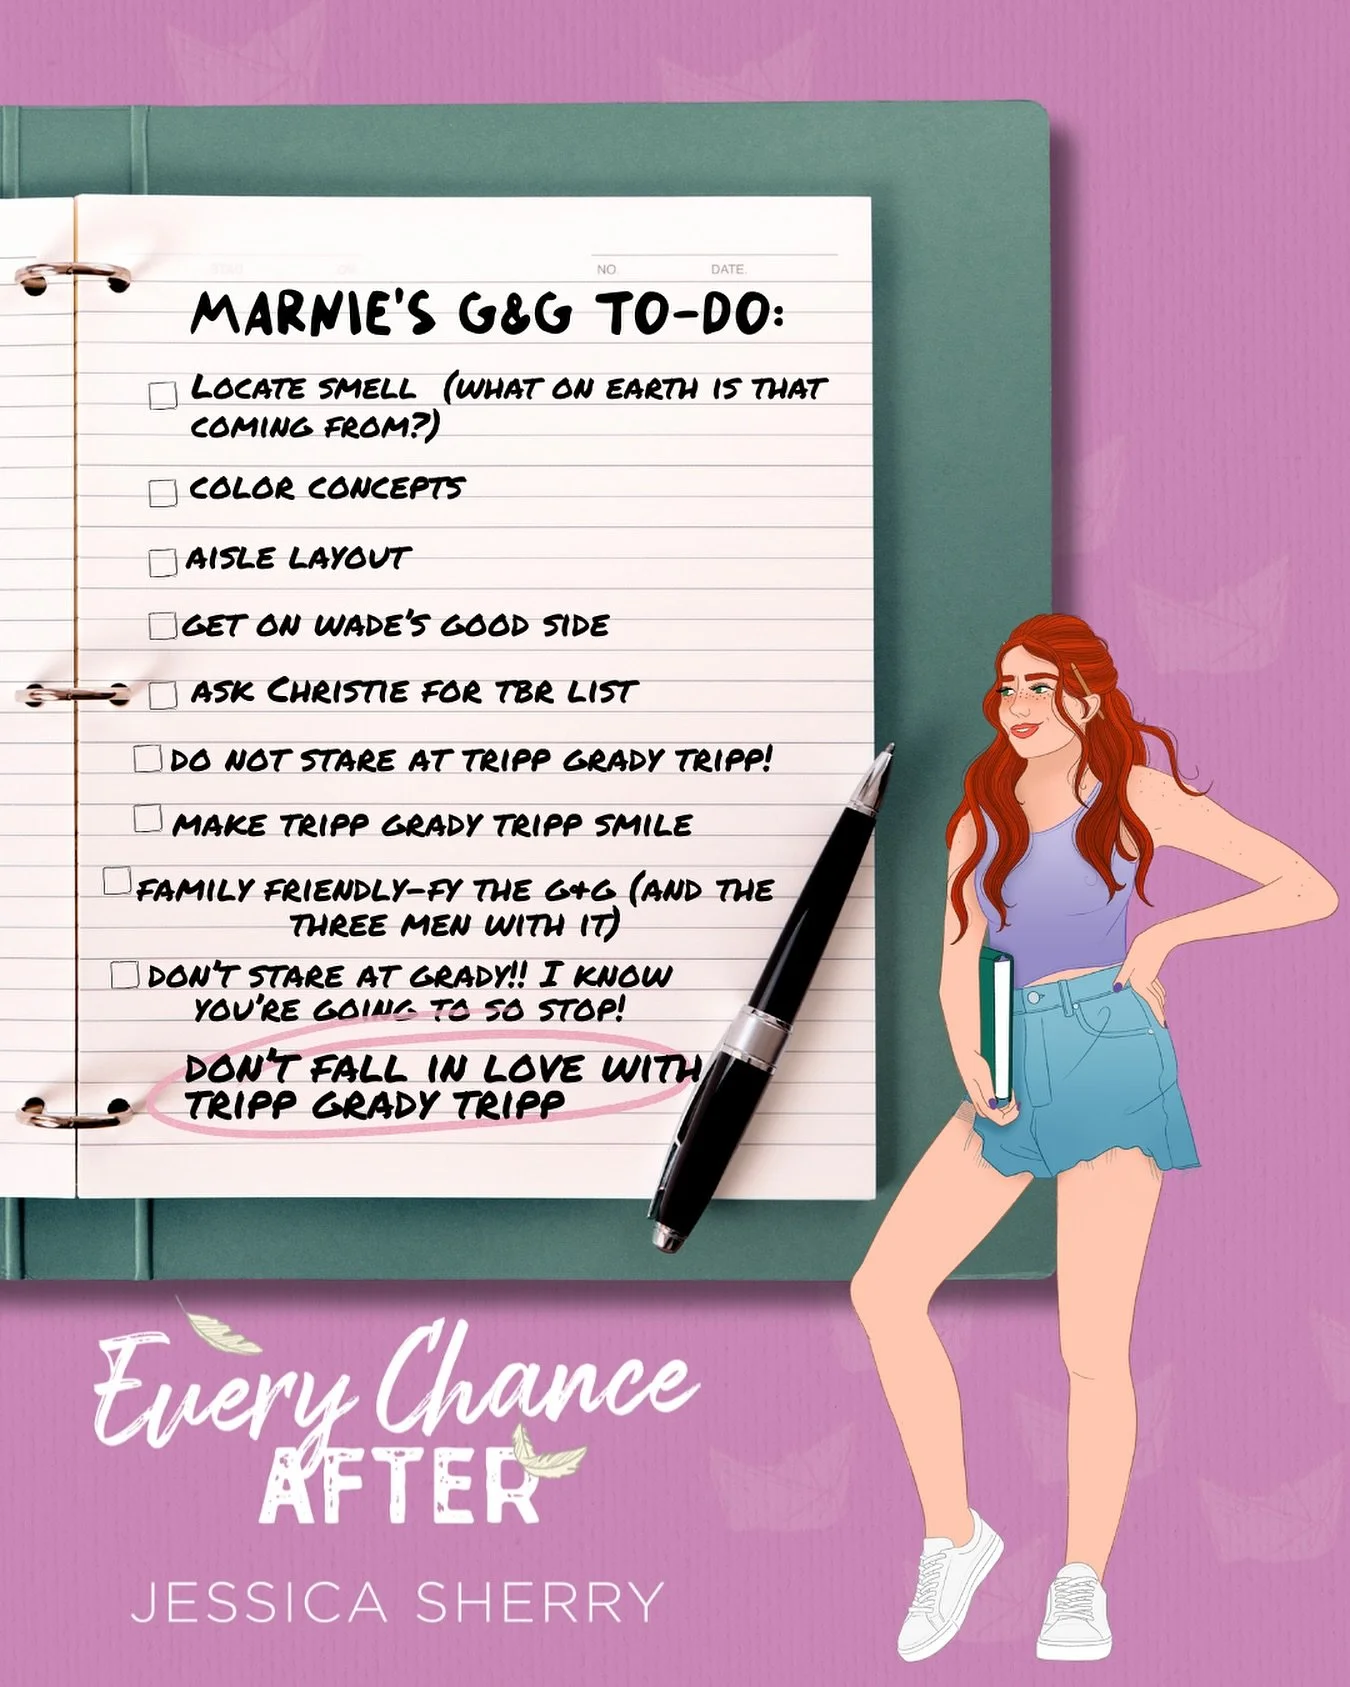 NO. DATE.
MARNIE'S G&G TO-DO:
LOCATE SMELL (WHAT ON EARTH IS THAT
COMING FROM?)
COLOR CONCEPTS
AISLE LAYOUT
GET ON WADE'S GOOD SIDE
ASK CHRISTIE FOR TBR LIST
DO NOT STARE AT TRIPP GRADY TRIPP!
MAKE TRIPP GRADY TRIPP SMILE
FAMILY FRIENDLY-FY THE G&G (AND THE
THREE MEN WITH IT)
DON'T STARE AT GRADY!! I KNOW
YOU'RE GOING TO SO STOP!
DON'T FALL IN LOVE WITH
TRIPP GRADY TRIPP
Every Chance
AFTER
JESSICA SHERRY